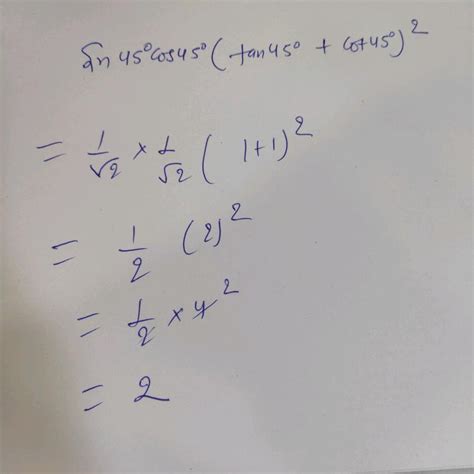 Sin 45° cos 45° ( tan 45° + cot 45° )²
= 1/√2 × 1/√2 ( 1+1 )²
= 1/2 (2)²
= 1/2 × 4 2
= 2